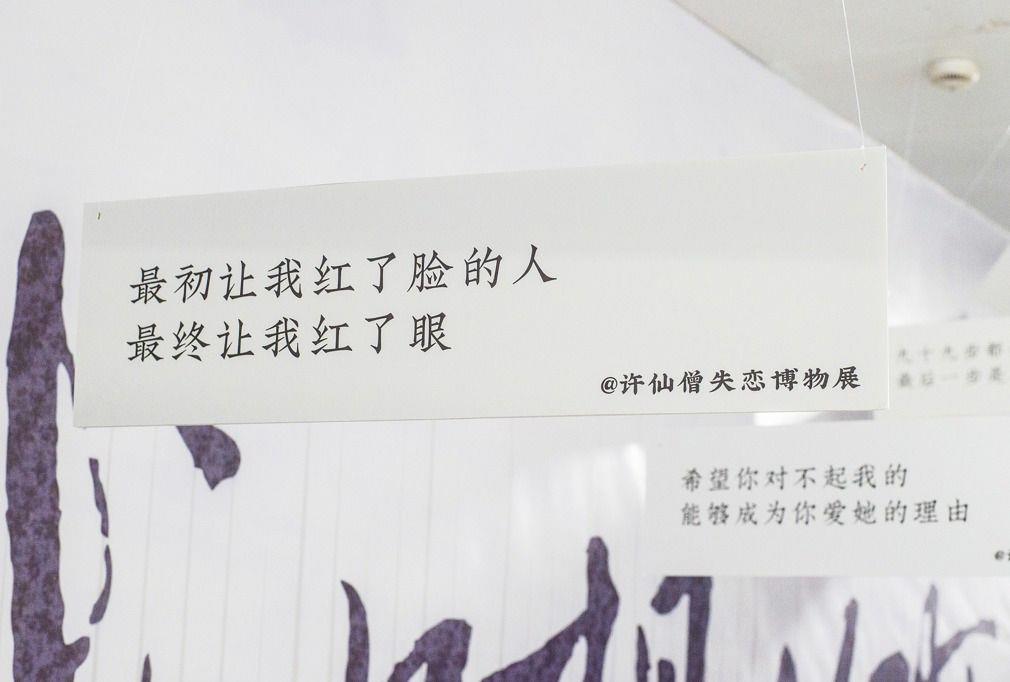 最初让我红了脸的人
最终让我红了眼
@许仙僧失恋博物展
九十九步都
最后一步是
希望你对不起我的
能够成为你爱她的理由